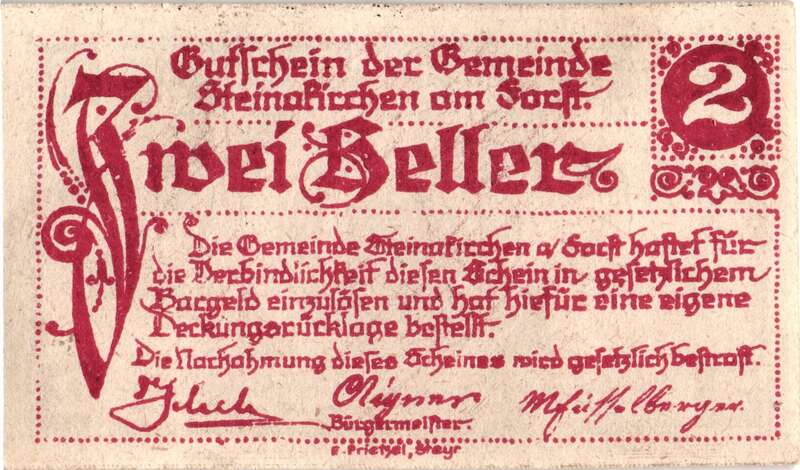 Gutschein der Gemeinde
Steinakirchen am Forst.
2
Zwei Heller
Die Gemeinde Steinakirchen a/Forst haftet für
die Verbindlichkeit diesen Schein in gesetzlichem
Bargeld einzulösen und hat hiefür eine eigene
Deckungsrücklage bestellt.
Die Nachahmung dieses Scheines wird gesetzlich bestraft.
Aigner
Bürgermeister.
E. Prietzel, Steyr